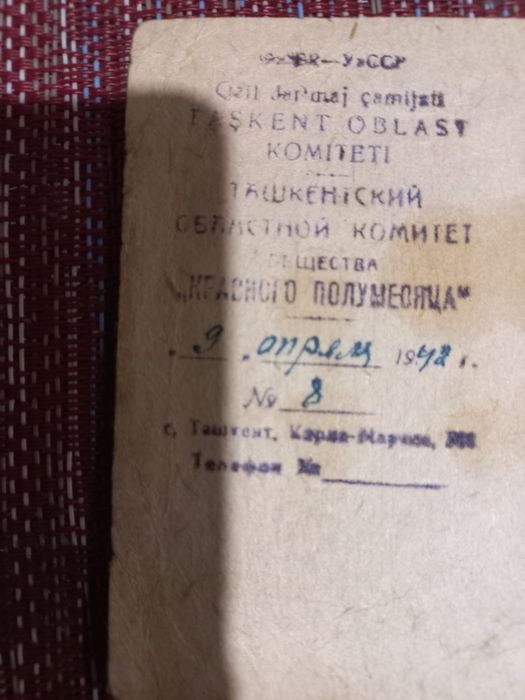 ӨzSSR—УзССР
Qzьl Jarьmaj çamijəti
TAŞKENT OBLAST
KOMITETI
ТАШКЕНТСКИЙ
ОБЛАСТНОЙ КОМИТЕТ
ОБЩЕСТВА
„КРАСНОГО ПОЛУМЕСЯЦА"
„ 9 „ апреля 1942 г.
№ 8
г. Ташкент, Карла-Маркса,
Телефон №